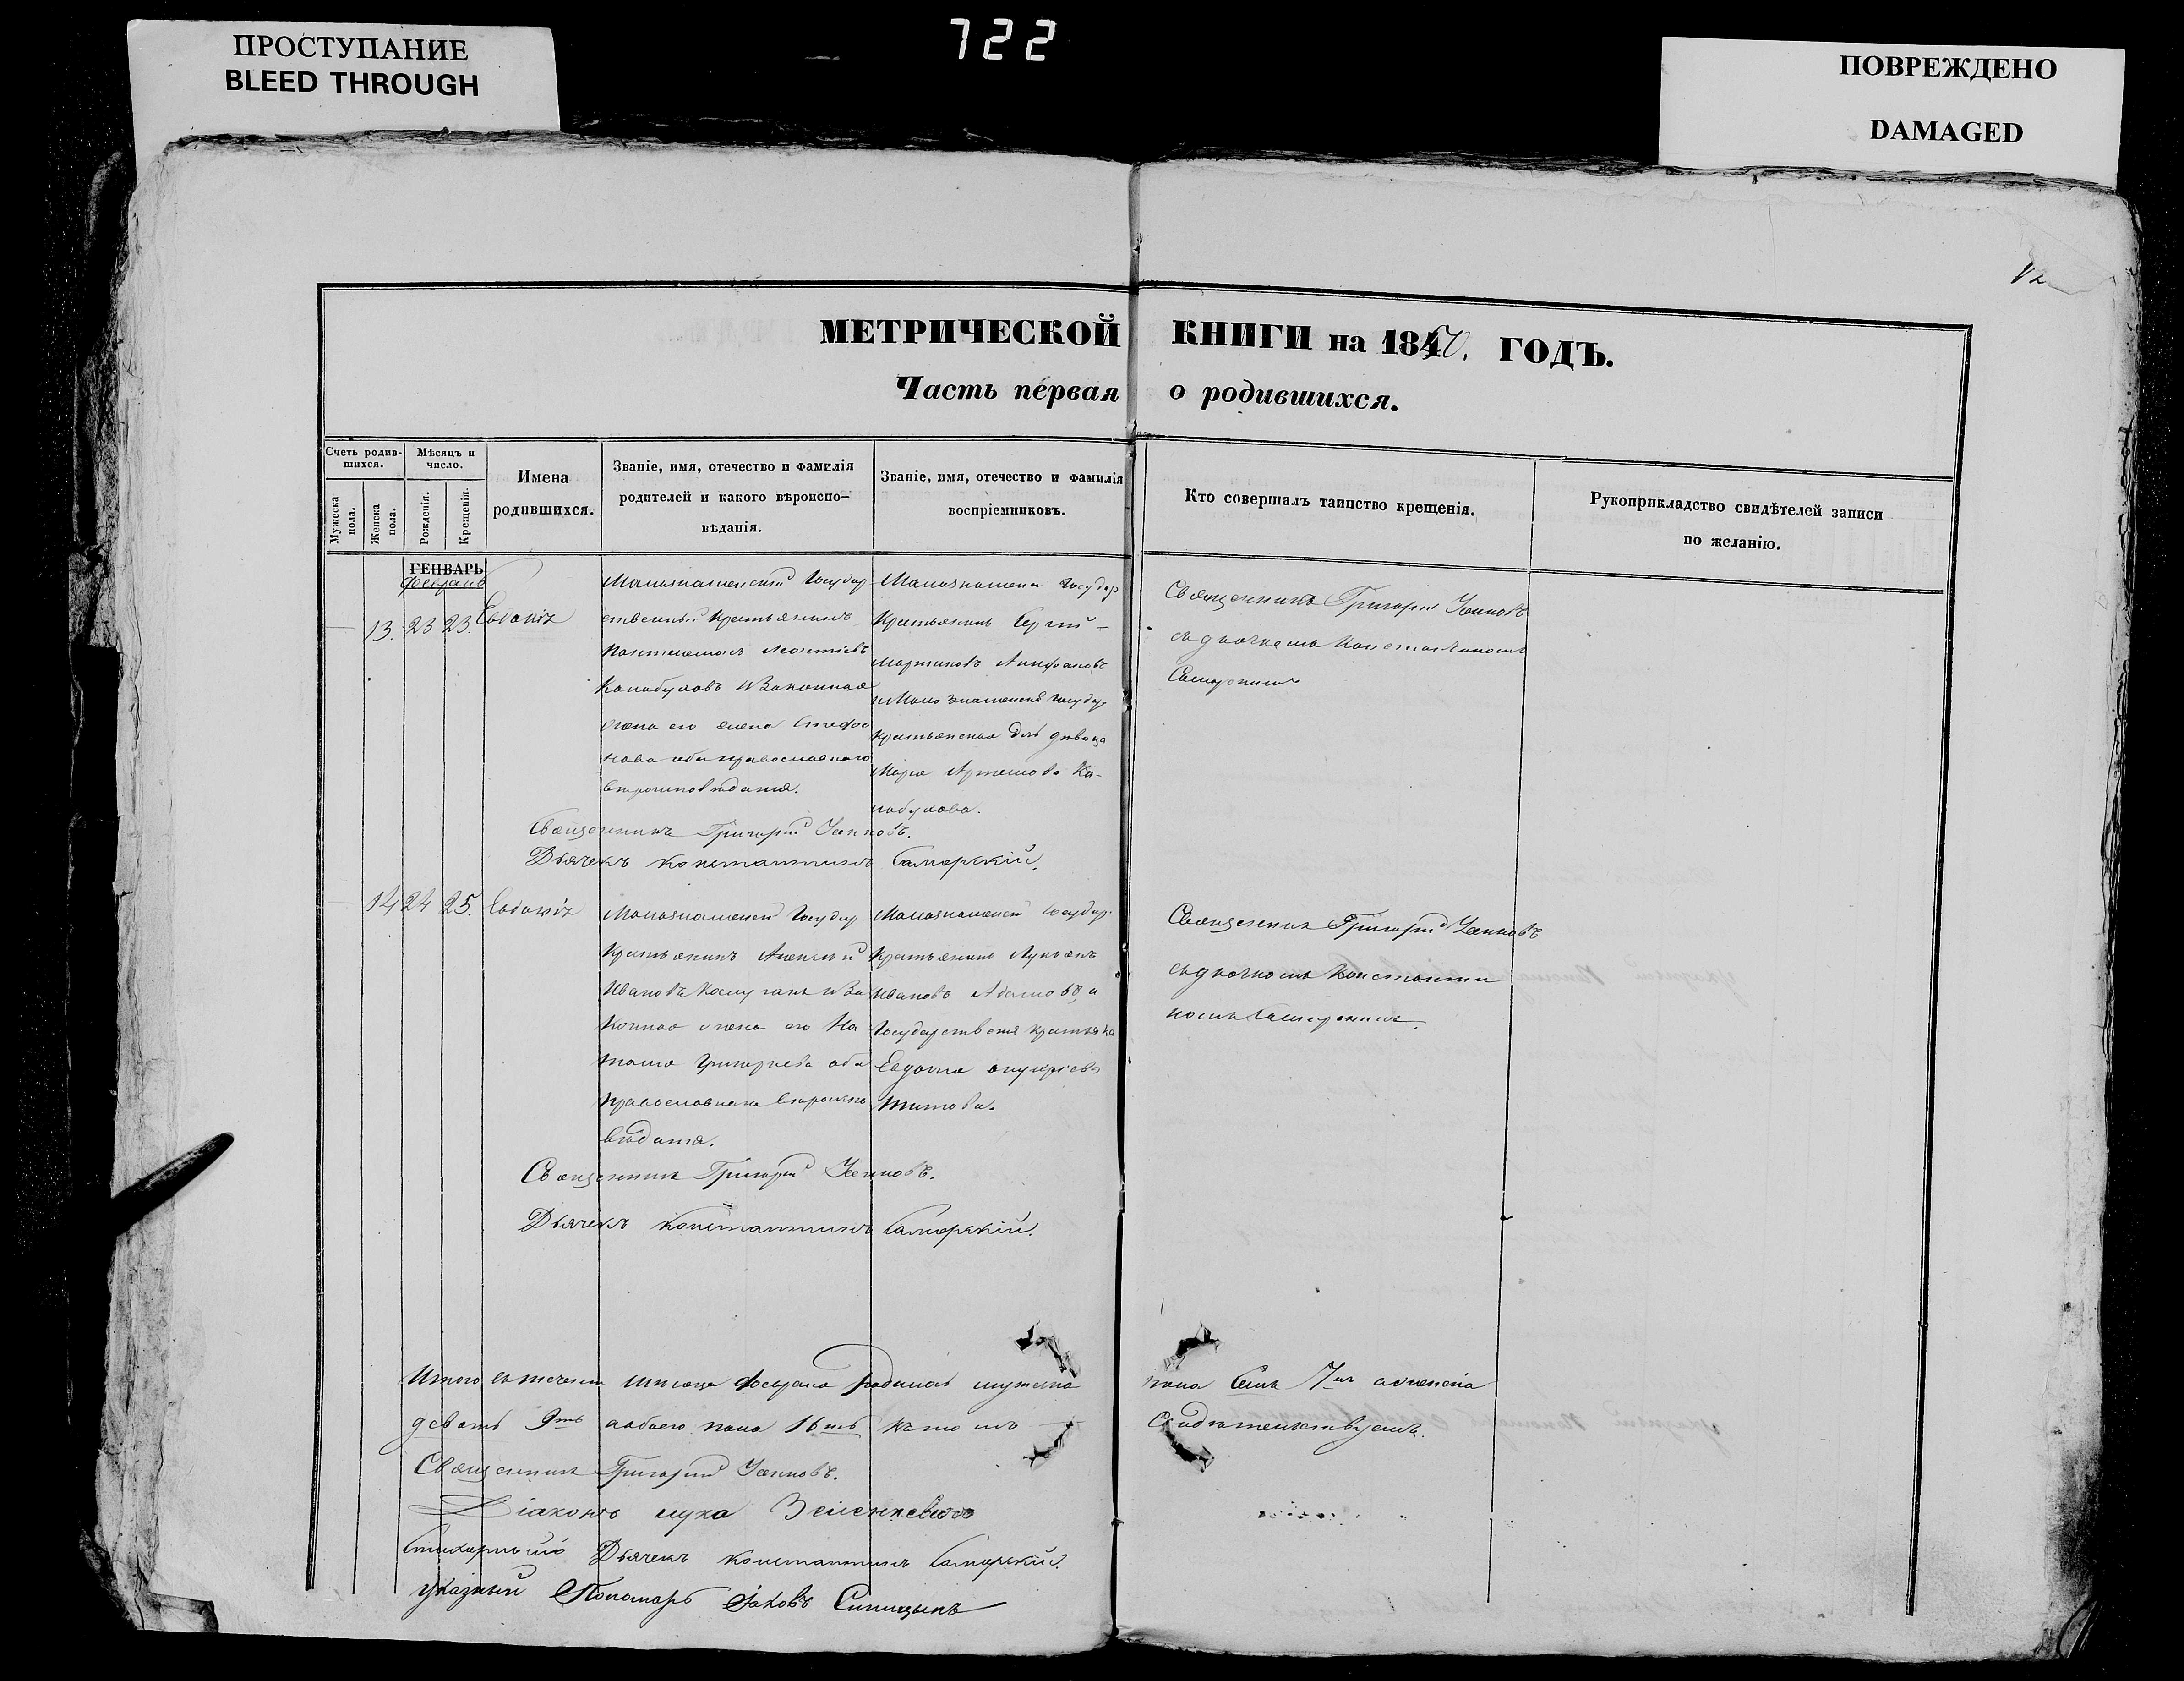 722
ПРОСТУПАНИЕ
BLEED THROUGH
ПОВРЕЖДЕНО
DAMAGED
12
МЕТРИЧЕСКОЙ КНИГИ на 1850. ГОДЪ.
Часть первая о родившихся.
Счетъ родив-
шихся.
Мужеска пола.
Женска пола.
Мѣсяцъ и
число.
Рожденія.
Крещенія.
Имена
родившихся.
Званіе, имя, отечество и фамилія
родителей и какого вѣроиспо-
вѣданія.
Званіе, имя, отечество и фамилія
воспріемниковъ.
Кто совершалъ таинство крещенія.
Рукоприкладство свидѣтелей записи
по желанію.
ГЕНВАРЬ
Февраль
13. 23 23. Евдокія
Малознаменскій Государ
ственный Крестьянинъ
Пантелеимонъ Леонтіевъ
Канабуховъ и Законная
жена его Елена Стефа
нова оба православнаго
вѣроисповѣданія.
Малознаменск Государ
Крестьянинъ Сергій
Мартиновъ
и Мало знаменскя Государ
крестьянская дочь дѣвица
Марѳа Артемова Ка-
набухова.
Священникъ Григорій
съ дьячкомъ Константиномъ
Самарскимъ
Священникъ Григорій
Дьячекъ Константинъ Самарскій.
14 24 25. Евдокія
Малознаменскій Государ
Крестьянинъ Алексѣй
Ивановъ и За
конная жена его На
талія Григорьева оба
православнаго вѣроиспо
вѣданія.
Малознаменскій Государ
Крестьянинъ Лукьянъ
Ивановъ Адамовъ и
Государственя крестьянка
Евдокія
Титова.
Священникъ Григорій
съ дьячкомъ Константи
номъ Самарскимъ.
Священникъ Григорій
Дьячекъ Константинъ Самарскій.
Итого въ теченіи мѣсяца Февраля родилось мужеска пола семь 7мь а женска
девять 9ть а обоего пола 16ть въ томъ свидѣтельствуемъ.
Священникъ Григорій
Діаконъ Лука
Стихарный Дьячекъ Константинъ Самарскій.
Указный Пономарь Іаковъ Синицынъ